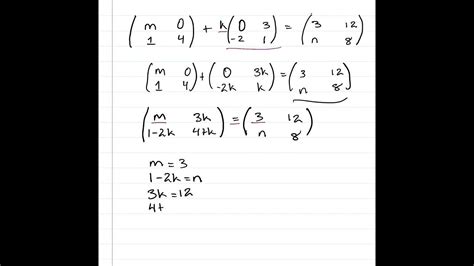 (m 0 1 4) + k(0 3 -2 1) = (3 12 n 8)
(m 0 1 4) + (0 3k -2k k) = (3 12 n 8)
(m 3k 1-2k 4+k) = (3 12 n 8)
m = 3
1-2k = n
3k = 12
4+